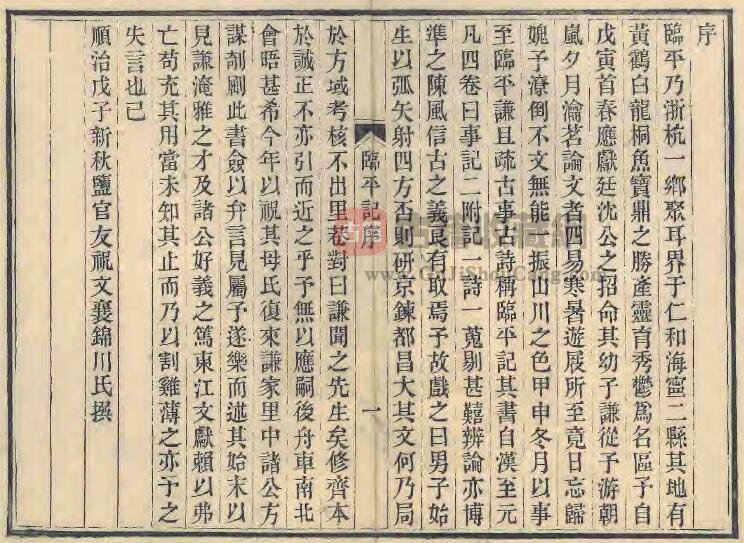 序
臨平乃浙杭一鄉聚耳界于仁和海寧二縣其地有
黃鶴白龍桐魚寶鼎之勝產靈育秀鬱爲名區予自
戊寅首春應獻廷沈公之招命其幼子謙從予游朝
嵐夕月瀹茗論文者四易寒暑遊屐所至竟日忘歸
媿予潦倒不文無能一振山川之色甲申冬月以事
至臨平謙且疏古事古詩稱臨平記其書自漢至元
凡四卷曰事記二附記一詩一蒐剔甚囏辨論亦博
準之陳風信古之義良有取焉予故戲之曰男子始
生以弧矢射四方否則研京鍊都昌大其文何乃局
臨平記序
一
於方域考核不出里巷對曰謙聞之先生矣修齊本
於誠正不亦引而近之乎予無以應嗣後舟車南北
會晤甚希今年以祝其母氏復來謙家里中諸公方
謀剞劂此書僉以弁言見屬予遂樂而述其始末以
見謙淹雅之才及諸公好義之篤東江文獻賴以弗
亡苟充其用當未知其止而乃以割雞薄之亦予之
失言也已
順治戊子新秋鹽官友祝文襄錦川氏撰
www.GuJiShouCang.com